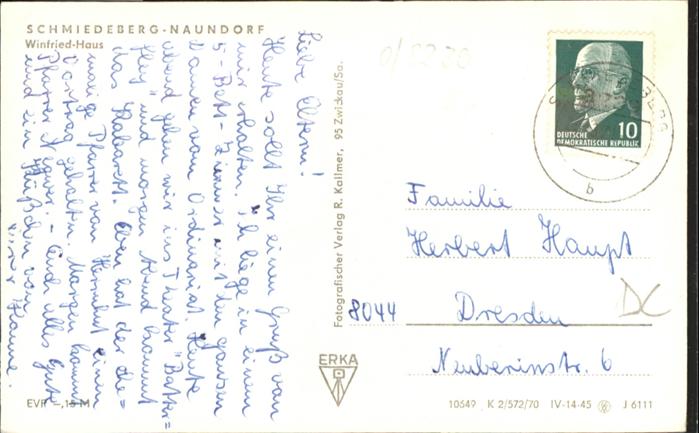 SCHMIEDEBERG-NAUNDORF
Winfried-Haus
Liebe Eltern!
Heute sollt Ihr einen Gruß von
mir erhalten. Ich liege in einem
5-Bett-Zimmer mit den ganzen
Damen vom Ordinariat. Heute
abend gehen wir ins Theater "Batter=
fly" und morgen Abend kommt
das Kabarett. Eben hat der ehe=
malige Pfarrer von Herrnhut einen
Vortrag gehalten. Morgen kommt
Pfarrer - Euch alles Gute
und ein Küßchen von
Hanne.
Fotografischer Verlag R. Kallmer, 95 Zwickau/Sa.
10
DEUTSCHE
DEMOKRATISCHE REPUBLIK
b
Familie
Herbert Haupt
8044 Dresden
Neuberinstr. 6
ERKA
EVP -,15 M
10549 K 2/572/70 IV-14-45 J 6111